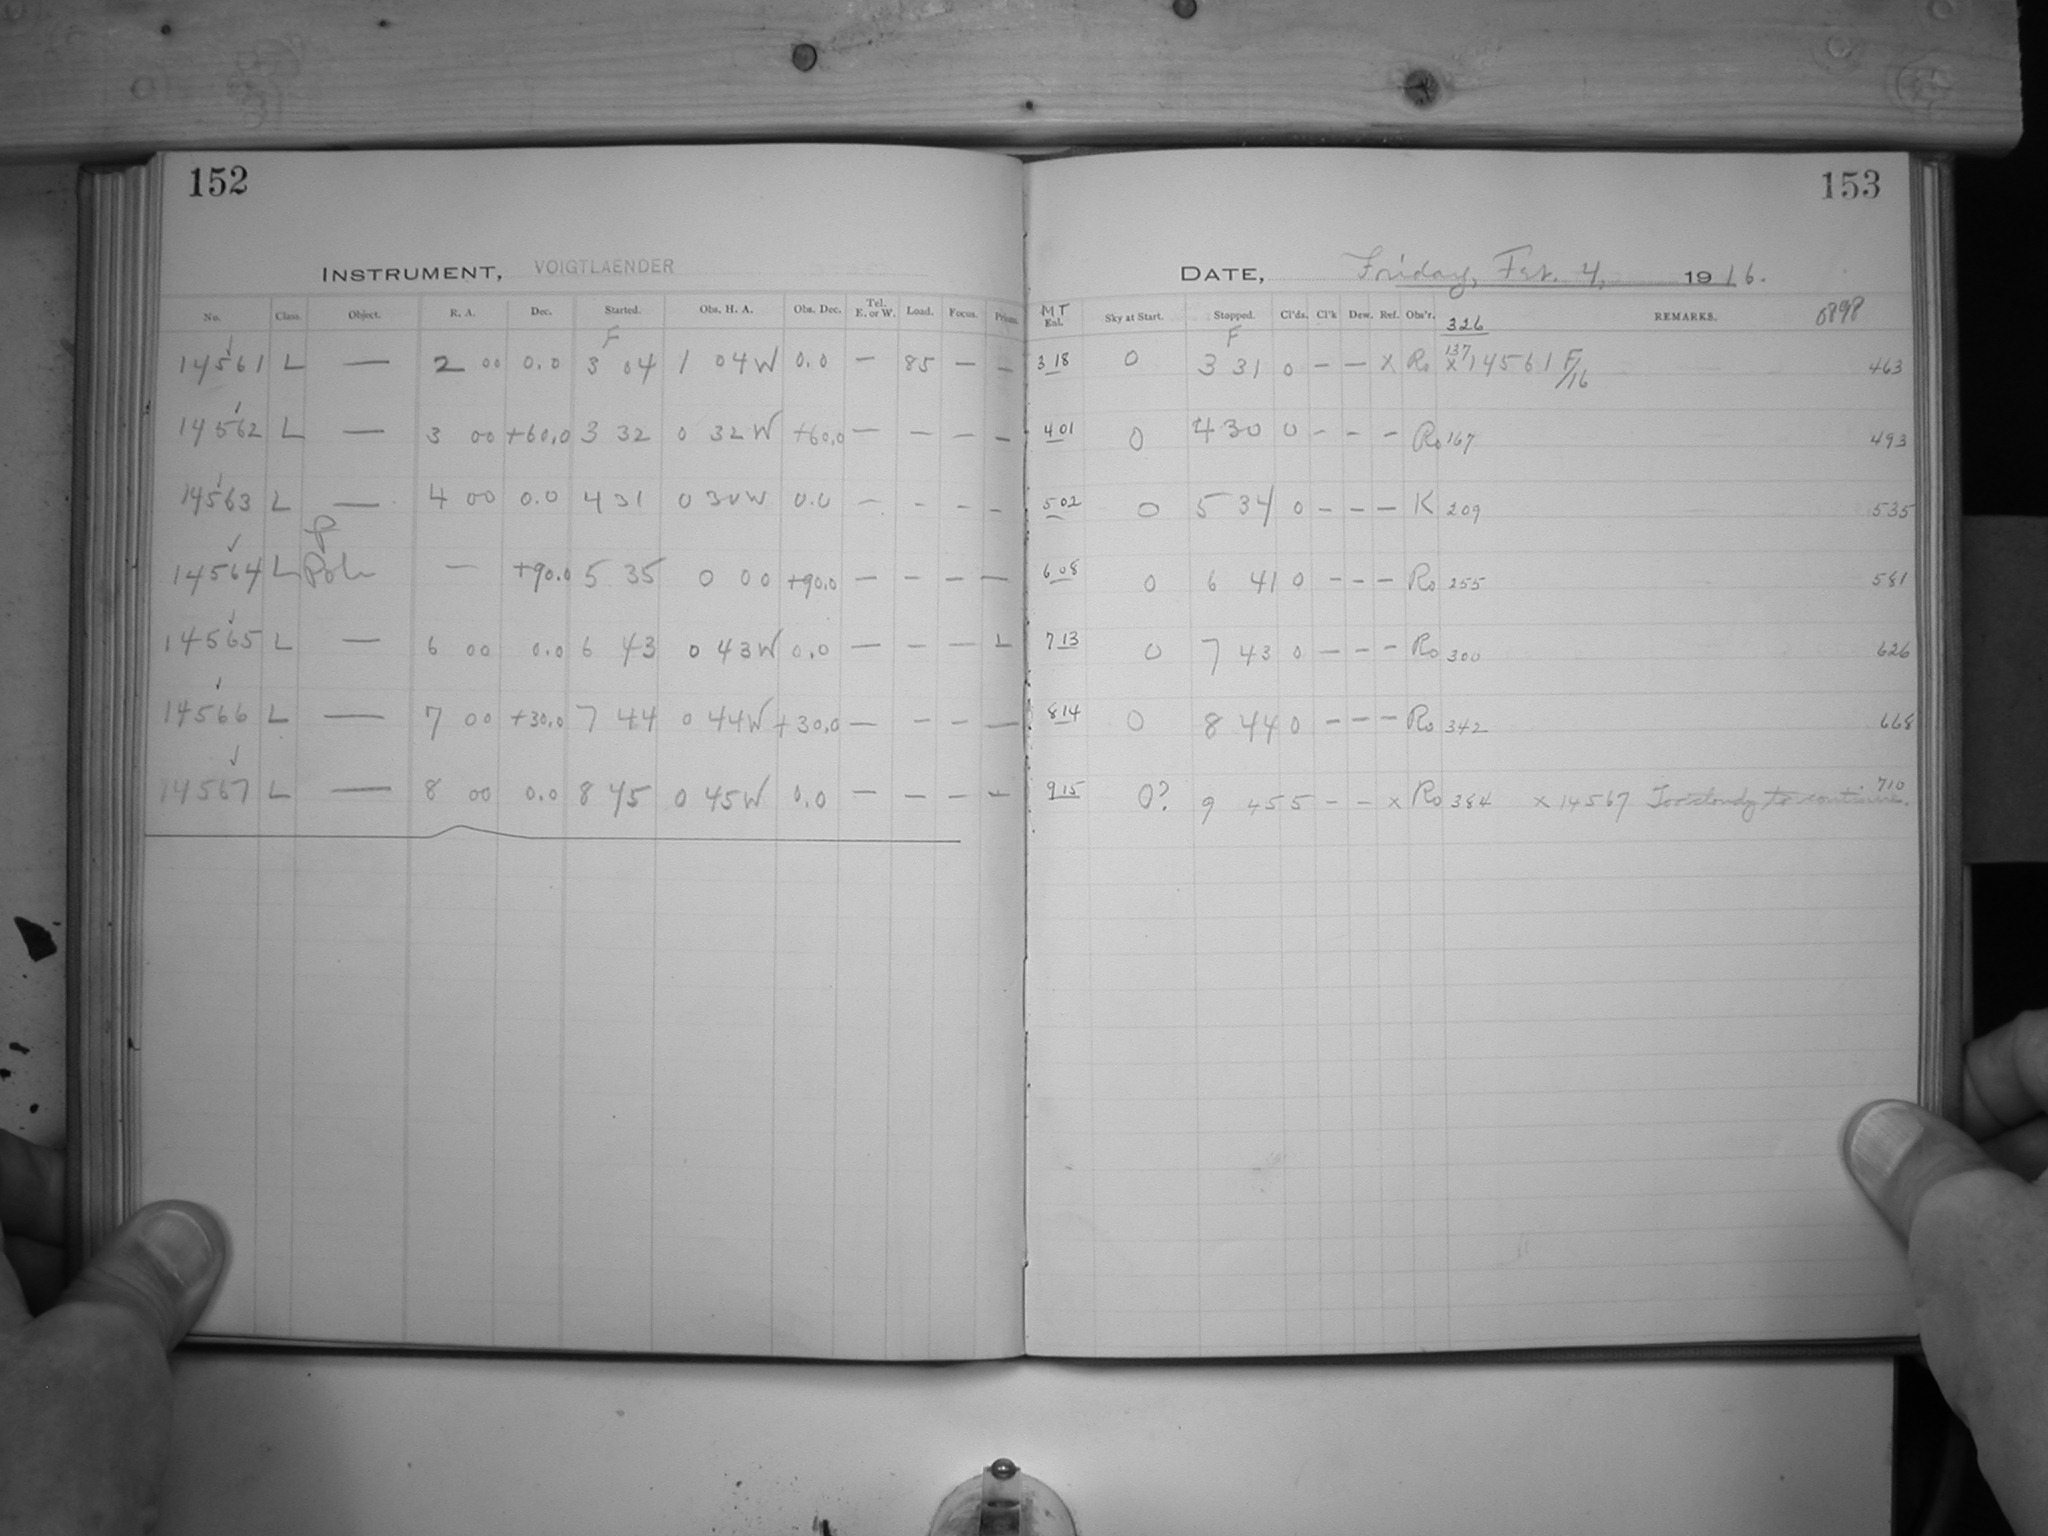 152
153
INSTRUMENT, VOIGTLAENDER
DATE, Friday, Feb. 4, 1916.
No. Class. Object. R. A. Dec. Started. Obs. H. A. Obs. Dec. Tel. E. or W. Load. Focus. Prism. MT Eal. Sky at Start. Stopped. Cl'ds. Cl'k Dew. Ref. Obs'r. 326 REMARKS. 0898
F F
14561 L — 2 00 0.0 3 04 1 04W 0.0 — 85 — — 3 18 0 3 31 0 — — x Ro 137 x14561 F/16 463
14562 L — 3 00 +60.0 3 32 0 32W +60.0 — — — — 4 01 0 4 30 0 - - - Ro 167 493
14563 L — 4 00 0.0 4 31 0 30W 0.0 — - - - 5 02 0 5 34 0 - - - K 209 535
P
14564 L Pole — +90.0 5 35 0 00 +90.0 — — — — 6 08 0 6 41 0 - - - Ro 255 581
14565 L — 6 00 0.0 6 43 0 43W 0.0 — — — L 7 13 0 7 43 0 - - - Ro 300 626
14566 L — 7 00 +30.0 7 44 0 44W +30.0 — - - — 8 14 0 8 44 0 - - - Ro 342 668
14567 L — 8 00 0.0 8 45 0 45W 0.0 — — — — 9 15 0? 9 45 5 - - x Ro 384 x 14567 Too cloudy to continue. 710